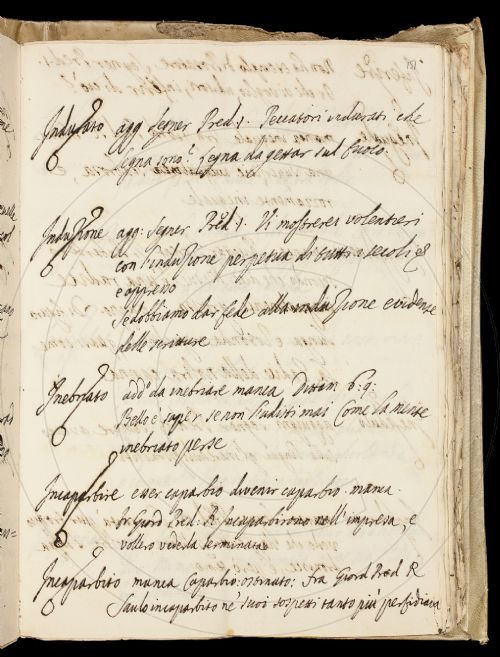 151
Indurato agg. Segner Pred: 1. Peccatori indurati che
legna sono legna da gettar sul fuoco.
Induzione agg: Segner Pred: 1. Vi mostrerei volentieri
con l'induzione perpetua di tutti i secoli
e appreso
Se dobbiamo dar fede alla induzione evidente
delle scritture
Inebriato add.o da inebriare manca
Bello è saper se non l'aduli mai come la mente
inebriato
Incaparbire esser caparbio divenir caparbio. manca.
fr. Giord Pred. R. Incaparbirono nell'impresa, e
vollero vederla terminata
Incaparbito manca caparbio: ostinato: fra Giord Pred R
Saulo incaparbito ne' suoi sospetti tanto più perfidiava